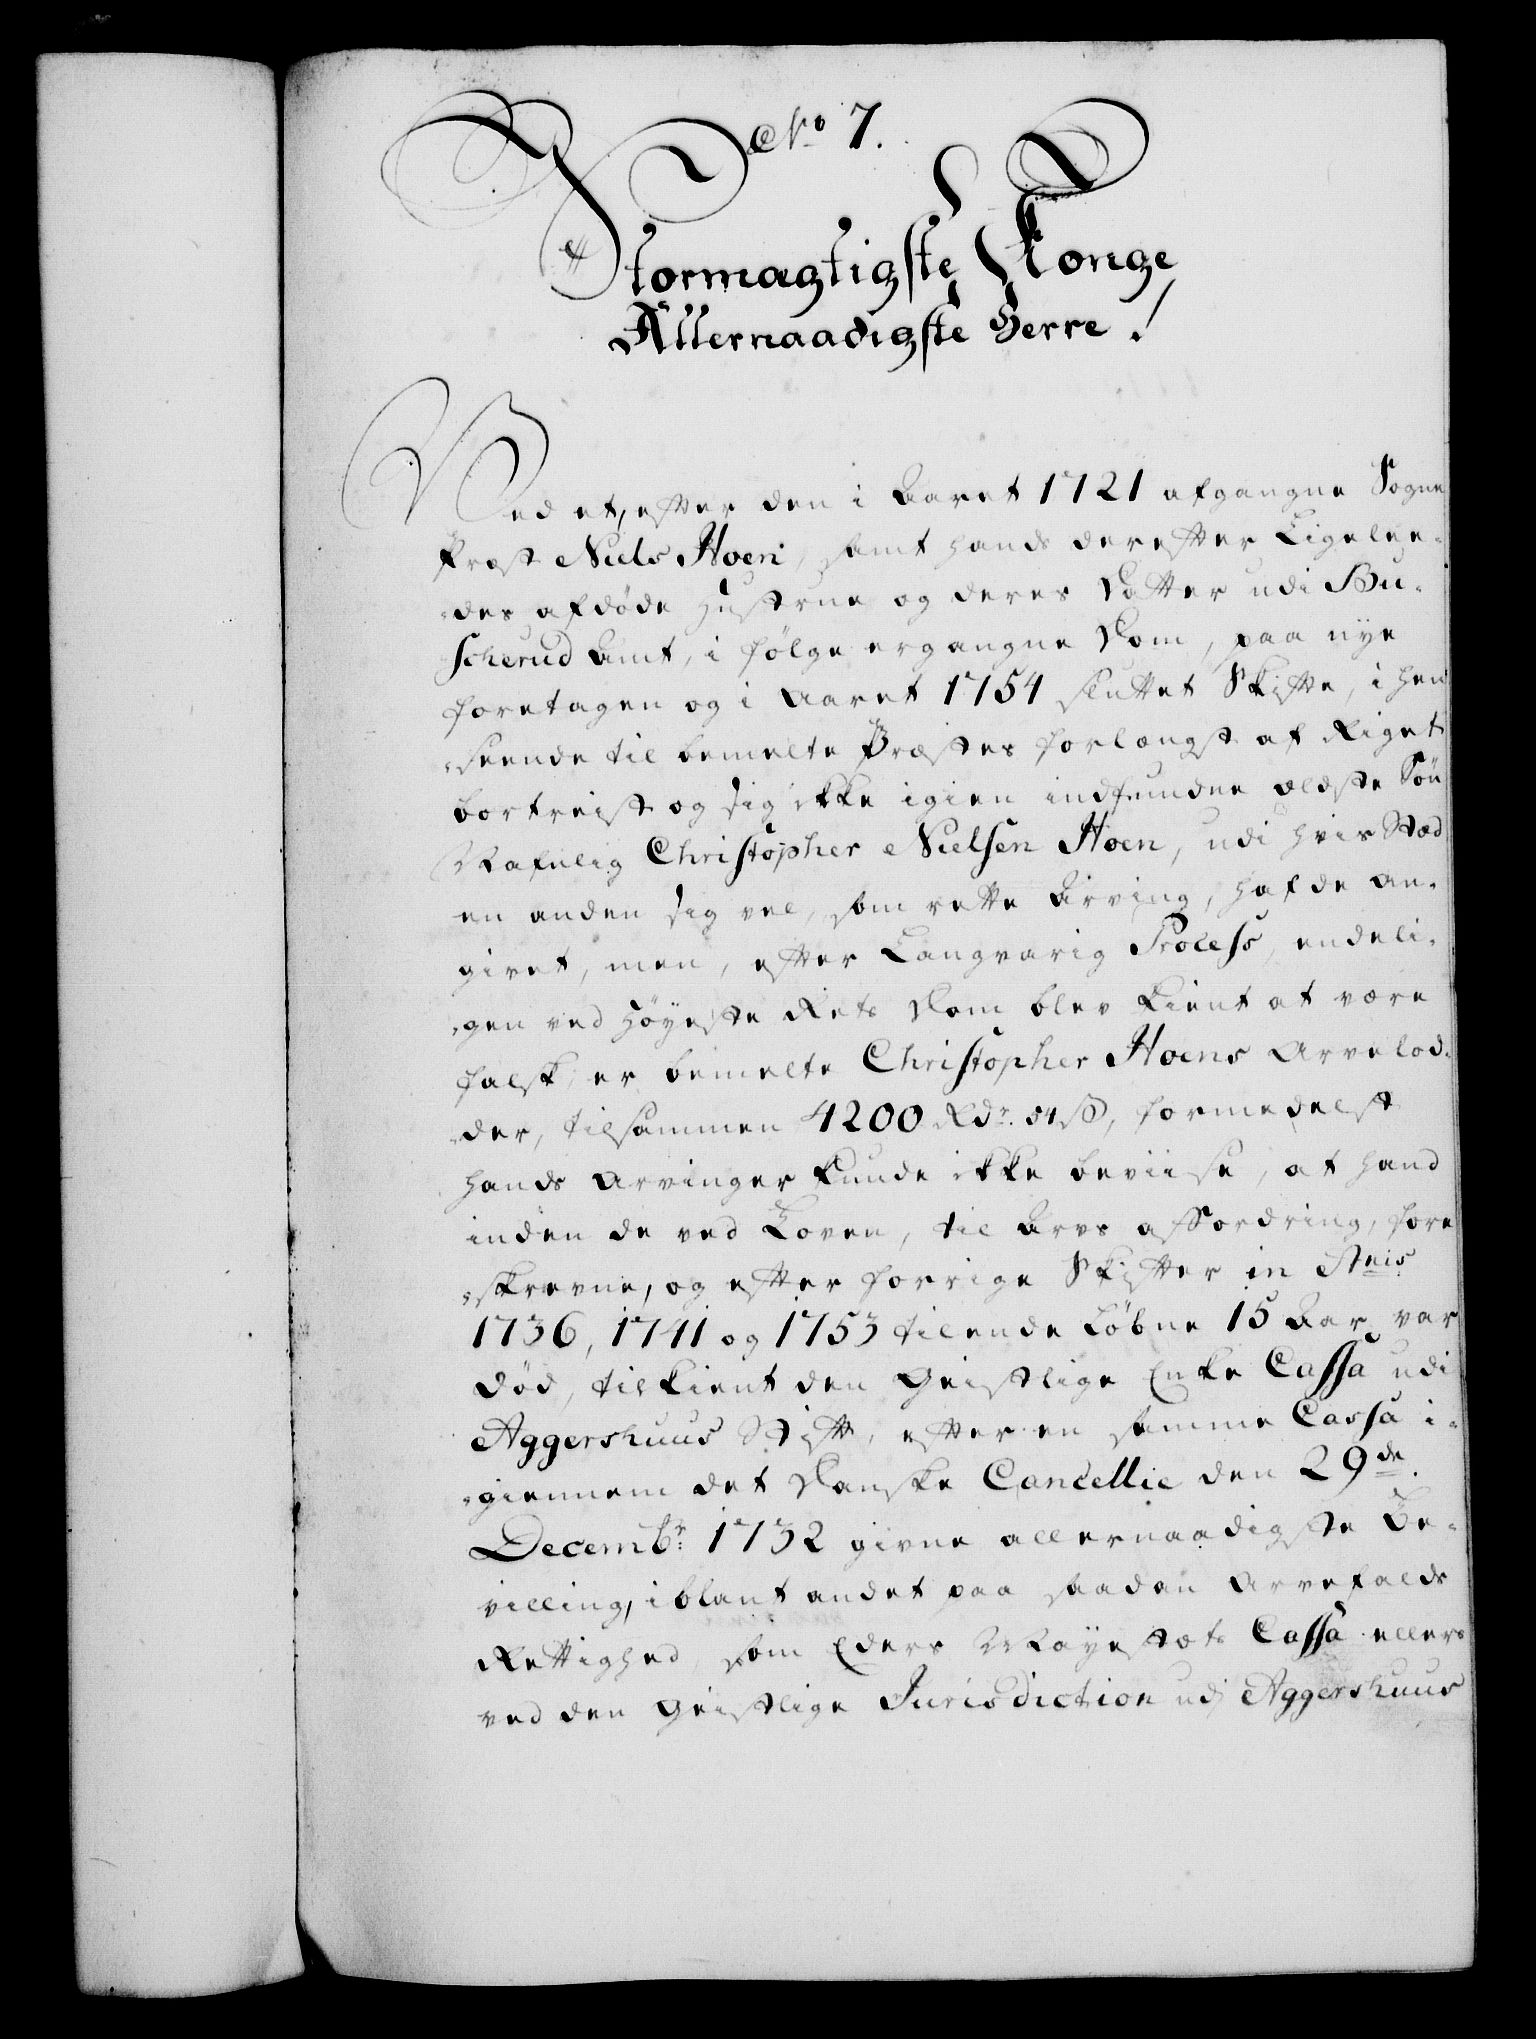 No 7.
Stormagtigste Konge
Allernaadigste Herre!
Ved et, efter den i Aaret 1721 afgangne Sogne
Præst Niels Hoen, samt hands derefter Ligelee-
des afdøde Hustrue og deres Datter udi Bu-
scherud Amt, i følge ergangne Dom, paa nye
foretagen og i Aaret 1754 sluttet Skifte, i hen
seende til bemelte Præstes forlængst af Riget
bortreist og sig ikke igien indfundne ældste Søn
Nafnlig Christopher Nielsen Hoen, udi hvis Stæd
en anden sig vel, som rette Arving, hafde an-
givet, men, efter Langvarig Process, endeli-
gen ved Høyeste Rets Dom blev kient at være
falsk, er bemelte Christopher Hoens Arvelod-
der, tilsammen 4200 Rdr. 54 ß, formedelst
hands Arvinger kunde ikke beviise, at hand
inden de ved Loven, til Arvs affordring, fore
skrevne, og efter forrige Skifter in Annis
1736, 1741 og 1753 tilende Løbne 15 Aar, var
død, tilkient den Geistlige Enke Cassa udi
Aggershuus Stift, efter en samme Cassa i-
giennem det Danske Cancellie den 29de
Decembr: 1732 givne allernaadigste Be-
villing, iblant andet paa saadan Arvefalds
Rettighed som Eders Mayestæts Cassa ellers
ved den Geistlige Jurisdiction udj Aggershuus